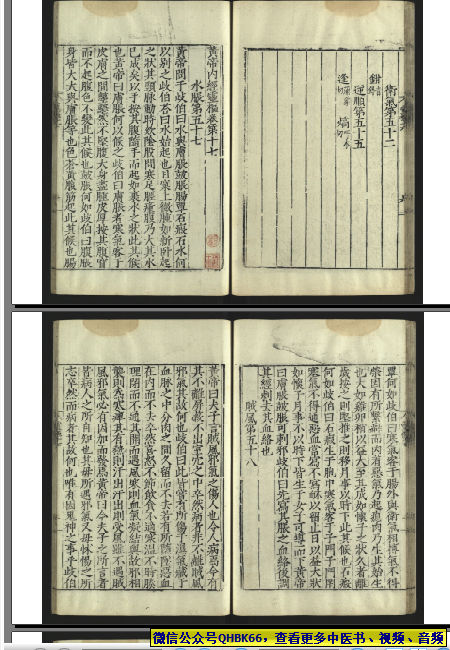 衛氣第五十二
逆順第五十五
黃帝內經靈樞卷第十七
水脹第五十七
黃帝問于歧伯曰水與膚脹鼓脹腸覃石瘕石水何
以別之歧伯答曰水始起也目窠上微腫如新臥起
之狀其頸脉動時欬陰股間寒足脛瘇腹乃大其水
已成矣以手按其腹隨手而起如裹水之狀此其候
也黃帝曰膚脹何以候之歧伯曰膚脹者寒氣客于
皮膚之間鼟鼟然不堅腹大身盡腫皮厚按其腹窅
而不起腹色不變此其候也鼓脹何如歧伯曰腹脹
身皆大大與膚脹等也色蒼黃腹筋起此其候也腸
覃何如歧伯曰寒氣客于腸外與衛氣相搏氣不得
榮因有所繫癖而內著惡氣乃起瘜肉乃生其始生
也大如雞卵稍以益大至其成如懷子之狀久者離
歲按之則堅推之則移月事以時下此其候也石瘕
何如歧伯曰石瘕生于胞中寒氣客于子門子門閉
塞氣不得通惡血當寫不寫衃以留止日以益大狀
如懷子月事不以時下皆生于女子可導而下黃帝
曰膚脹鼓脹可刺邪歧伯曰先寫其脹之血絡後調
其經刺去其血絡也
賊風第五十八
黃帝曰夫子言賊風邪氣之傷人也令人病焉今有
其不離屏蔽不出室穴之中卒然病者非不離賊風
邪氣其故何也歧伯曰此皆嘗有所傷于濕氣藏于
血脉之中分肉之間久留而不去若有所墮墜惡血
在內而不去卒然喜怒不節飲食不適寒溫不時腠
理閉而不通其開而遇風寒則血氣凝結與故邪相
襲則為寒痹其有熱則汗出汗出則受風雖不遇賊
風邪氣必有因加而發焉黃帝曰今夫子之所言者
皆病人之所自知也其毋所遇邪氣又毋怵惕之所
志卒然而病者其故何也唯有因鬼神之事乎歧伯
微信公众号QHBK66，查看更多中医书、视频、音频